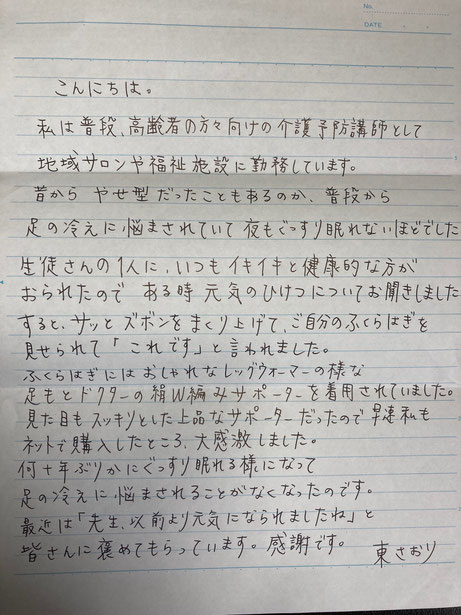 No.
DATE
こんにちは。
私は普段、高齢者の方々向けの介護予防講師として
地域サロンや福祉施設に勤務しています。
昔から やせ型だったこともあるのか、普段から
足の冷えに悩まされていて 夜もぐっすり眠れないほどでした
生徒さんの1人に、いつもイキイキと健康的な方が
おられたので ある時 元気のひけつについてお聞きしました
すると、サッと ズボンをまくり上げて、ご自分のふくらはぎを
見せられて「これです」と言われました。
ふくらはぎにはおしゃれなレッグウォーマーの様な
足もとドクターの絹W編みサポーターを着用されていました。
見た目もスッキリとした上品なサポーターだったので早速私も
ネットで購入したところ、大感激しました。
何十年ぶりかにぐっすり眠れる様になって
足の冷えに悩まされることがなくなったのです。
最近は「先生、以前より元気になられましたね」と
皆さんに褒めてもらっています。感謝です。
東さおり